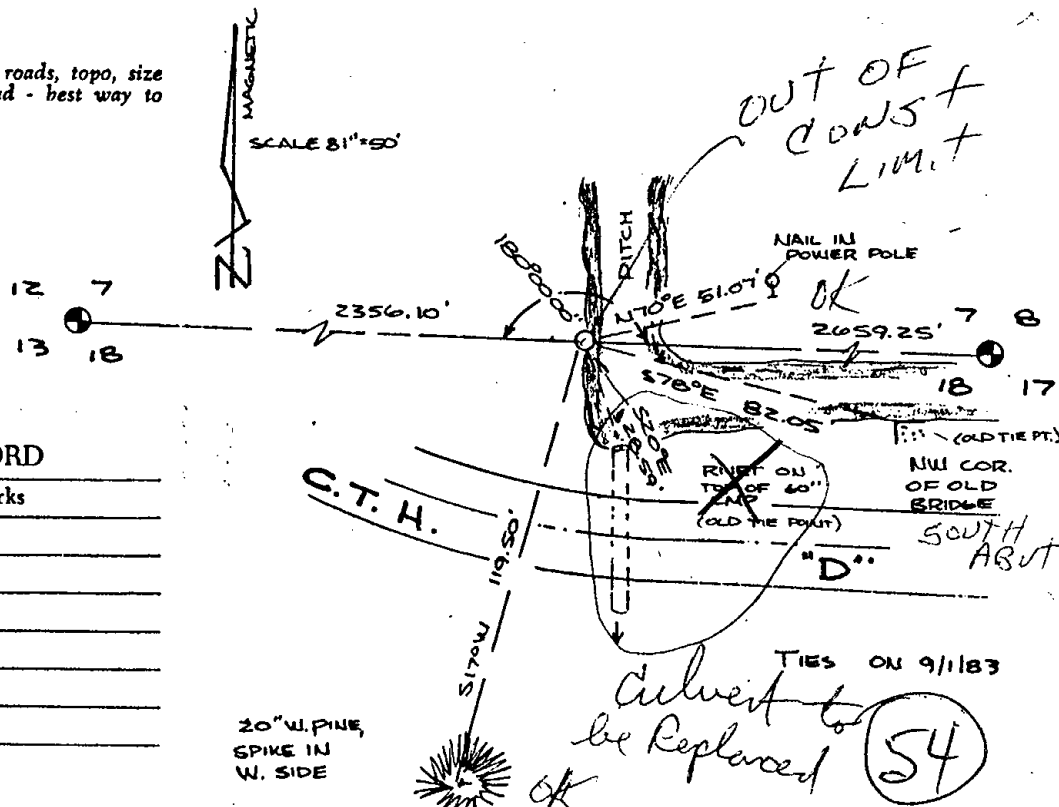 roads, topo, size
d - best way to
MAGNETIC
SCALE 81"=50'
N
OUT OF
CONST
LIMIT
180°00'00"
DITCH
NAIL IN
POWER POLE
OK
N70°E 51.07'
12 7
13 18
2356.10'
2659.25'
7 8
18 17
S78°E 82.05
S20°E
(OLD TIE PT.)
NW COR.
OF OLD
BRIDGE
SOUTH
ABUT
RIVET ON
TOP OF 60"
CMP
(OLD TIE POINT)
ORD
rks
C.T.H.
"D"
S17°W 119.50'
TIES ON 9/1/83
Culvert to
be Replaced
54
20" W. PINE,
SPIKE IN
W. SIDE
OK